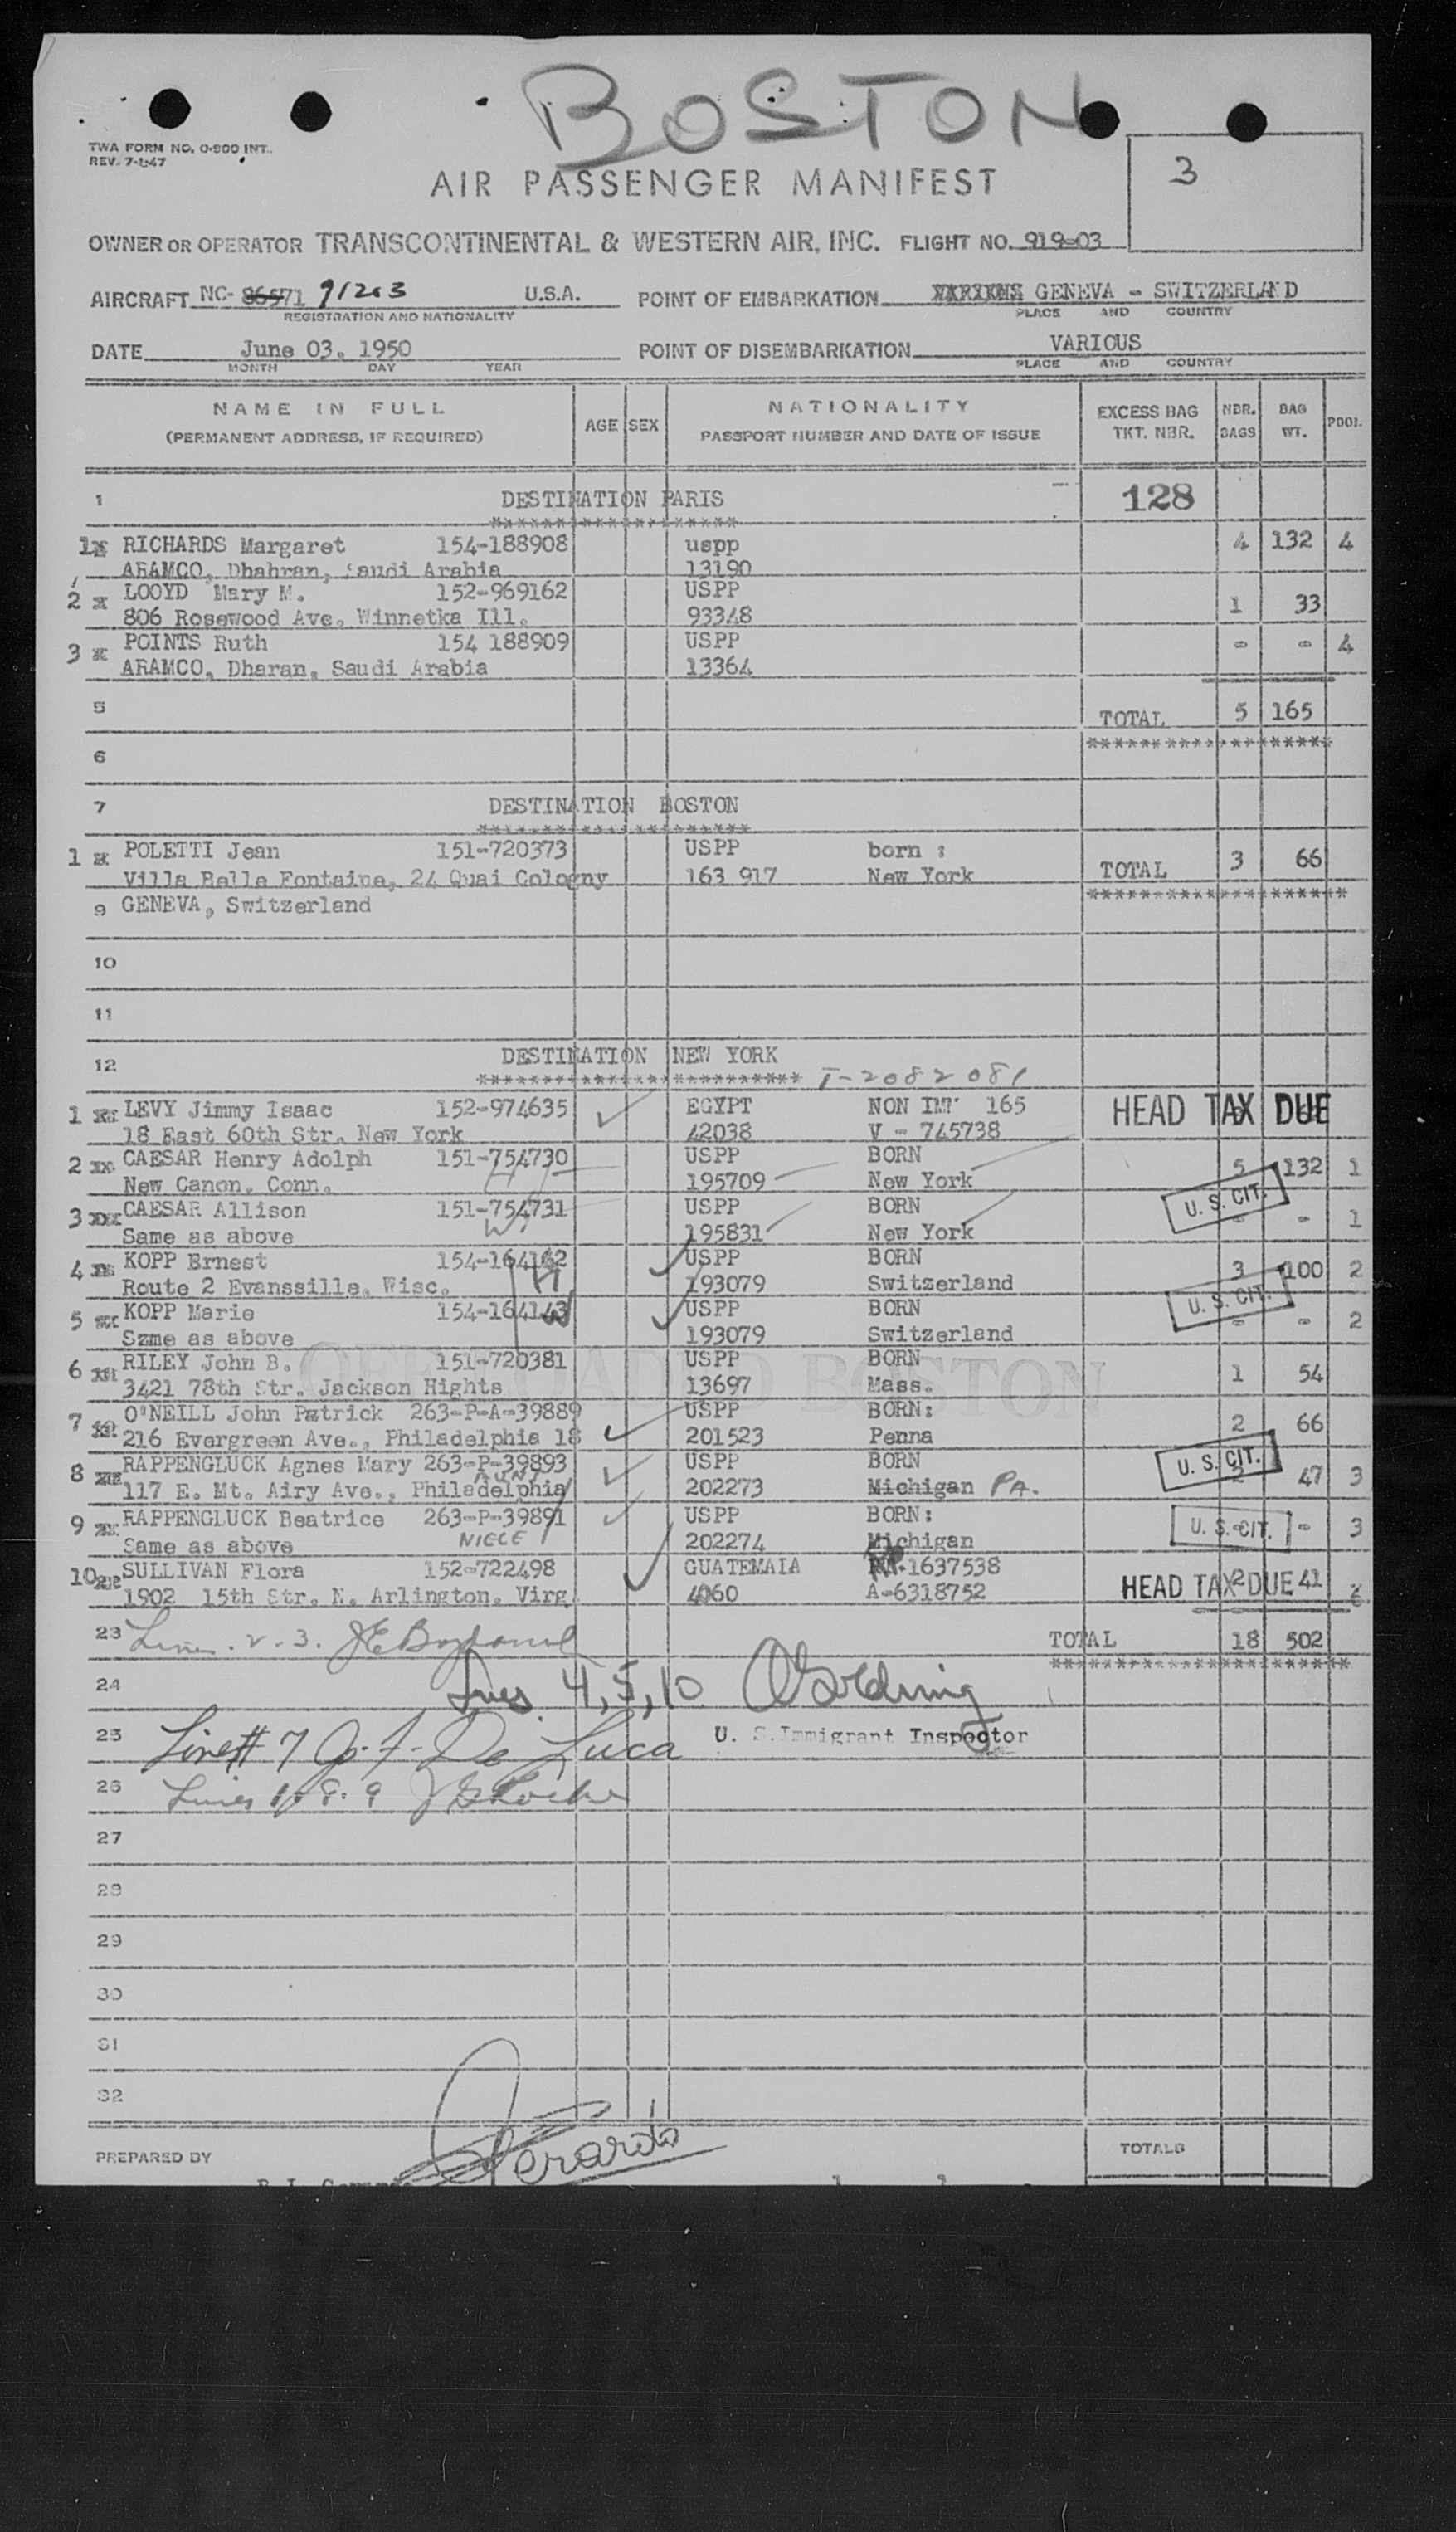 BOSTON
TWA FORM NO. 0-800 INT.
REV. 7-1-47
AIR PASSENGER MANIFEST
3
OWNER OR OPERATOR TRANSCONTINENTAL & WESTERN AIR, INC. FLIGHT NO. 919-03
AIRCRAFT NC- 86571 91203 U.S.A. POINT OF EMBARKATION GENEVA - SWITZERLAND
REGISTRATION AND NATIONALITY PLACE AND COUNTRY
DATE June 03. 1950 POINT OF DISEMBARKATION VARIOUS
MONTH DAY YEAR PLACE AND COUNTRY
NAME IN FULL AGE SEX NATIONALITY EXCESS BAG NBR. BAG POOL
(PERMANENT ADDRESS, IF REQUIRED) PASSPORT NUMBER AND DATE OF ISSUE TKT. NBR. BAGS WT.
1 DESTINATION PARIS 128
*******************
1 RICHARDS Margaret 154-188908 uspp 4 132 4
ARAMCO, Dhahran, Saudi Arabia 13190
2 LOOYD Mary M. 152-969162 USPP 1 33
806 Rosewood Ave. Winnetka Ill. 93348
3 POINTS Ruth 154 188909 USPP - - 4
ARAMCO, Dharan, Saudi Arabia 13364
5 TOTAL 5 165
******************
6
7 DESTINATION BOSTON
*********************
1 POLETTI Jean 151-720373 USPP born : TOTAL 3 66
Villa Belle Fontaine, 24 Quai Cologny 163 917 New York
9 GENEVA, Switzerland
10
11
12 DESTINATION NEW YORK
************************* T-2082081
1 LEVY Jimmy Isaac 152-974635 EGYPT NON IMT 165 HEAD TAX DUE
18 East 60th Str. New York 42038 V - 745738
2 CAESAR Henry Adolph 151-754730 USPP BORN 5 132 1
New Canon. Conn. H 195709 New York U. S. CIT.
3 CAESAR Allison 151-754731 USPP BORN - - 1
Same as above W 195831 New York
4 KOPP Ernest 154-164142 USPP BORN 3 100 2
Route 2 Evanssille. Wisc. H 193079 Switzerland U. S. CIT.
5 KOPP Marie 154-164143 W USPP BORN - - 2
Szme as above 193079 Switzerland
6 RILEY John B. 151-720381 USPP BORN 1 54
3421 78th Str. Jackson Hights 13697 Mass.
OFFLOADED BOSTON
7 O'NEILL John Patrick 263-P-A-39889 USPP BORN: 2 66
216 Evergreen Ave., Philadelphia 18 201523 Penna
8 RAPPENGLUCK Agnes Mary 263-P-39893 USPP BORN U. S. CIT. 2 47 3
AUNT
117 E. Mt. Airy Ave., Philadelphia 202273 Michigan PA.
9 RAPPENGLUCK Beatrice 263-P-39891 USPP BORN: U. S. CIT. - - 3
Same as above NIECE 202274 Michigan
10 SULLIVAN Flora 152-722498 GUATEMAIA 1637538 HEAD TAX DUE 2 41
1902 15th Str. N. Arlington. Virg 4060 A-6318752
23 Lines 2-3. TOTAL 18 502
***********************
24 Lines 4, 5, 10 Golding
25 Line# 7 G. F. De Luca U. S. Immigrant Inspector
26 Lines 1, 8. 9
27
28
29
30
31
32
PREPARED BY TOTALS